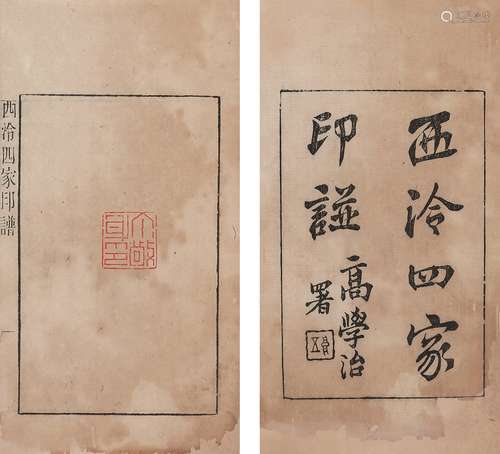 西泠四家
印譜
高學治
署
西泠四家印譜
一